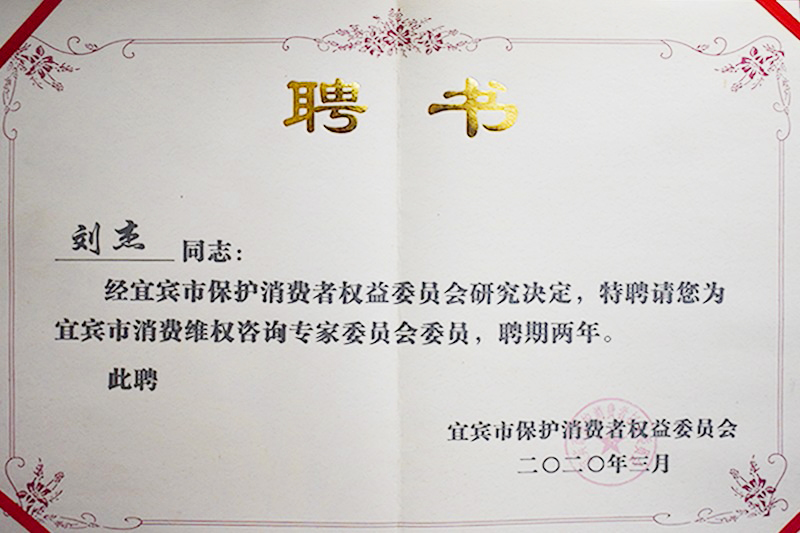 聘 书
刘杰 同志：
经宜宾市保护消费者权益委员会研究决定，特聘请您为
宜宾市消费维权咨询专家委员会委员，聘期两年。
此聘
宜宾市保护消费者权益委员会
二〇二〇年三月